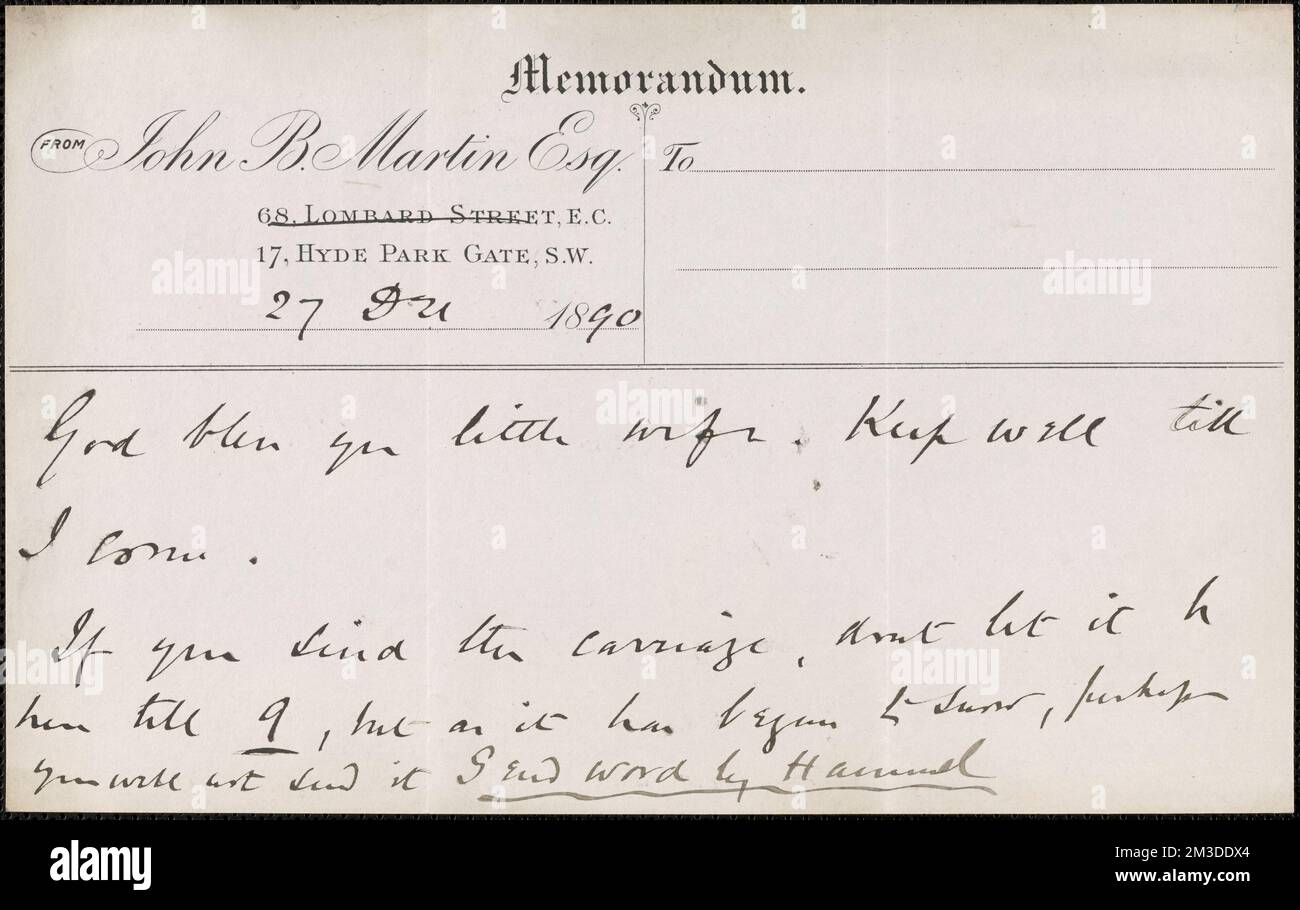 Memorandum.
FROM John B. Martin Esq. To
68, LOMBARD STREET, E.C.
17, HYDE PARK GATE, S.W.
27 Dec 1890
God bless you little wife. Keep well till
I come.
If you send the carriage, dont let it be
here till 9, but as it has begun to snow, perhaps
you will not send it Send word by
alamy
Image ID: 2M3DDX4
www.alamy.com